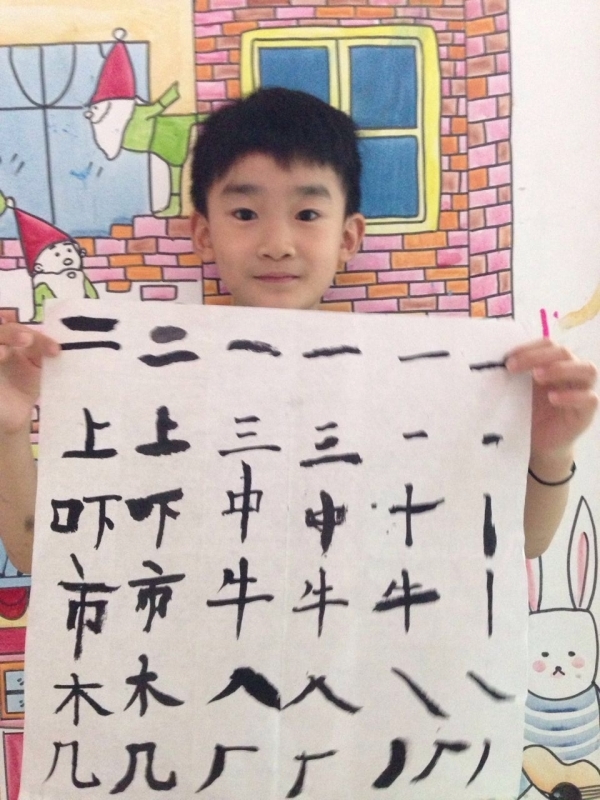 二 二 一 一 一 一
上 上 三 三 一 一
吓 吓 中 中 十 丨
市 市 牛 牛 牛 丨
木 木 人 人 ㇏ ㇏
几 几 厂 厂 丿 厂 丿